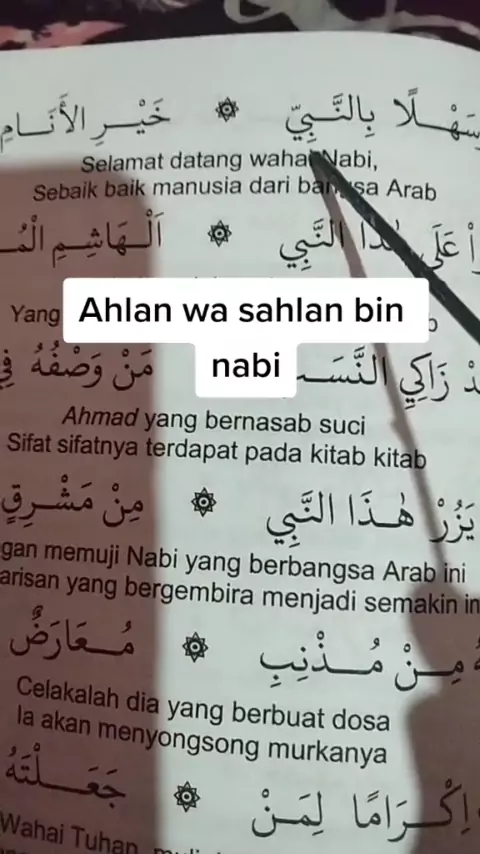 سَهْلًا بِالنَّبِيِّ ۞ خَيْرِ الأَنَامِ
Selamat datang wahai Nabi,
Sebaik baik manusia dari bangsa Arab
عَلَى هٰذَا النَّبِي ۞ اَلْهَاشِمِ
Ahlan wa sahlan bin
Yang
nabi
زَاكِي ۞ مَنْ وَصْفُهُ فِي
Ahmad yang bernasab suci
Sifat sifatnya terdapat pada kitab kitab
يَزُرْ هٰذَا النَّبِي ۞ مِنْ مَشْرِقٍ
gan memuji Nabi yang berbangsa Arab ini
arisan yang bergembira menjadi semakin in
مِنْ مُذْنِبِ ۞ مُعَارَضٌ
Celakalah dia yang berbuat dosa
Ia akan menyongsong murkanya
اِكْرَامًا لِمَنْ ۞ جَعَلْتَهُ
Wahai Tuhan,